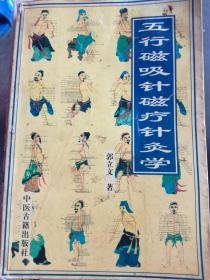 五行磁吸针磁疗针灸学
郭立文 著
中医古籍出版社